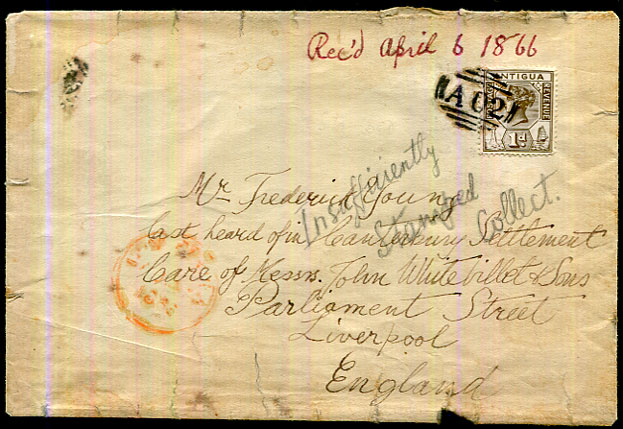 Rec'd April 6 1866
ANTIGUA
POSTAGE
REVENUE
1d
A02
Insufficiently
Stamped
Collect.
Mr Frederick Young
last heard of in Canterbury Settlement
Care of Messrs. John Whitebillet & Sons
Parliament Street
Liverpool
England